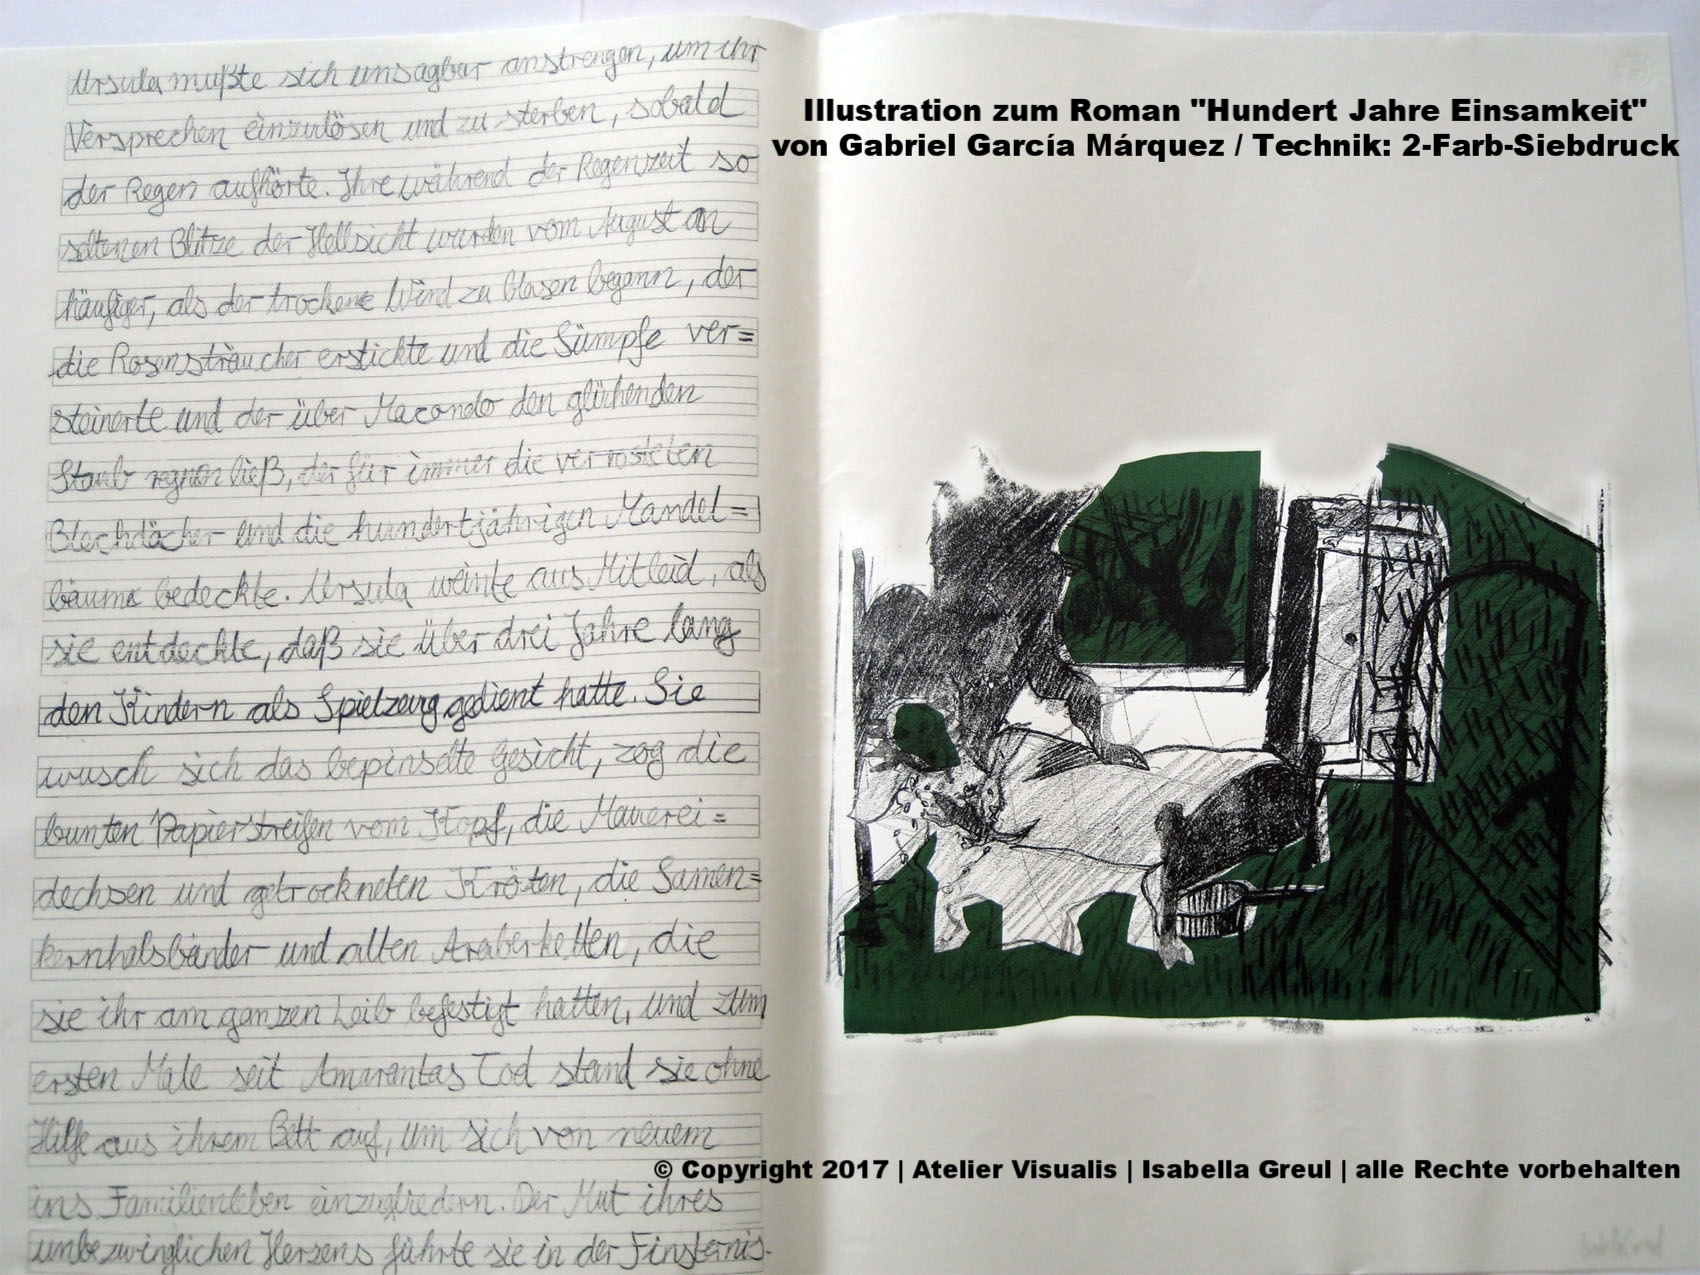 Ursula mußte sich unsagbar anstrengen, um ihr
Versprechen einzulösen und zu sterben, sobald
der Regen aufhörte. Ihre während der Regenzeit so
seltenen Blitze der Hellsicht wurden vom August an
häufiger, als der trockene Wind zu blasen begann, der
die Rosensträucher erstickte und die Sümpfe ver=
steinerte und der über Macondo den glühenden
Staub regnen ließ, der für immer die verrosteten
Blechdächer und die hundertjährigen Mandel=
bäume bedeckte. Ursula weinte aus Mitleid, als
sie entdeckte, daß sie über drei Jahre lang
den Kindern als Spielzeug gedient hatte. Sie
wusch sich das bepinselte Gesicht, zog die
bunten Papierstreifen vom Kopf, die Mauerei=
dechsen und getrockneten Kröten, die Samen=
kernhalsbänder und alten Araberketten, die
sie ihr am ganzen Leib befestigt hatten, und zum
ersten Male seit Amarantas Tod stand sie ohne
Hilfe aus ihrem Bett auf, um sich von neuem
ins Familienleben einzugliedern. Der Mut ihres
unbezwinglichen Herzens führte sie in der Finsternis.
Illustration zum Roman "Hundert Jahre Einsamkeit"
von Gabriel García Márquez / Technik: 2-Farb-Siebdruck
© Copyright 2017 | Atelier Visualis | Isabella Greul | alle Rechte vorbehalten